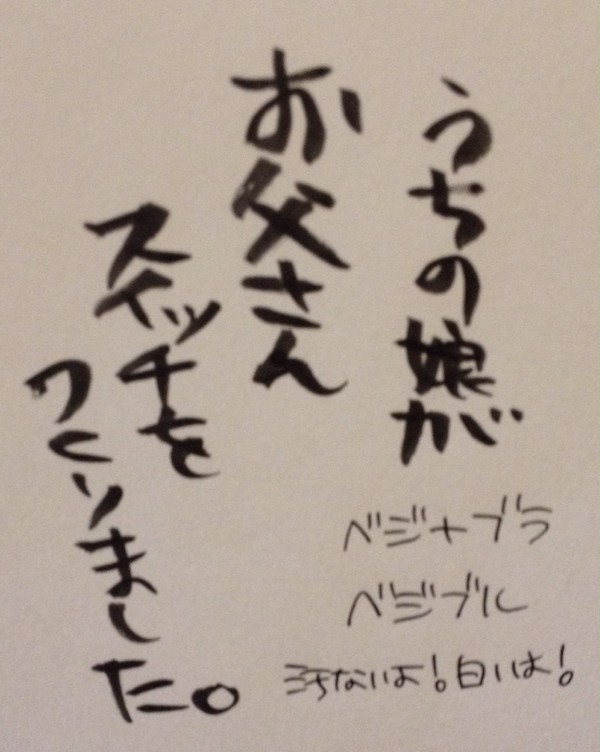 うちの娘が
お父さん
スイッチを
つくりました。
ベジャブラ
ベジブル
汚ないよ!白いは!